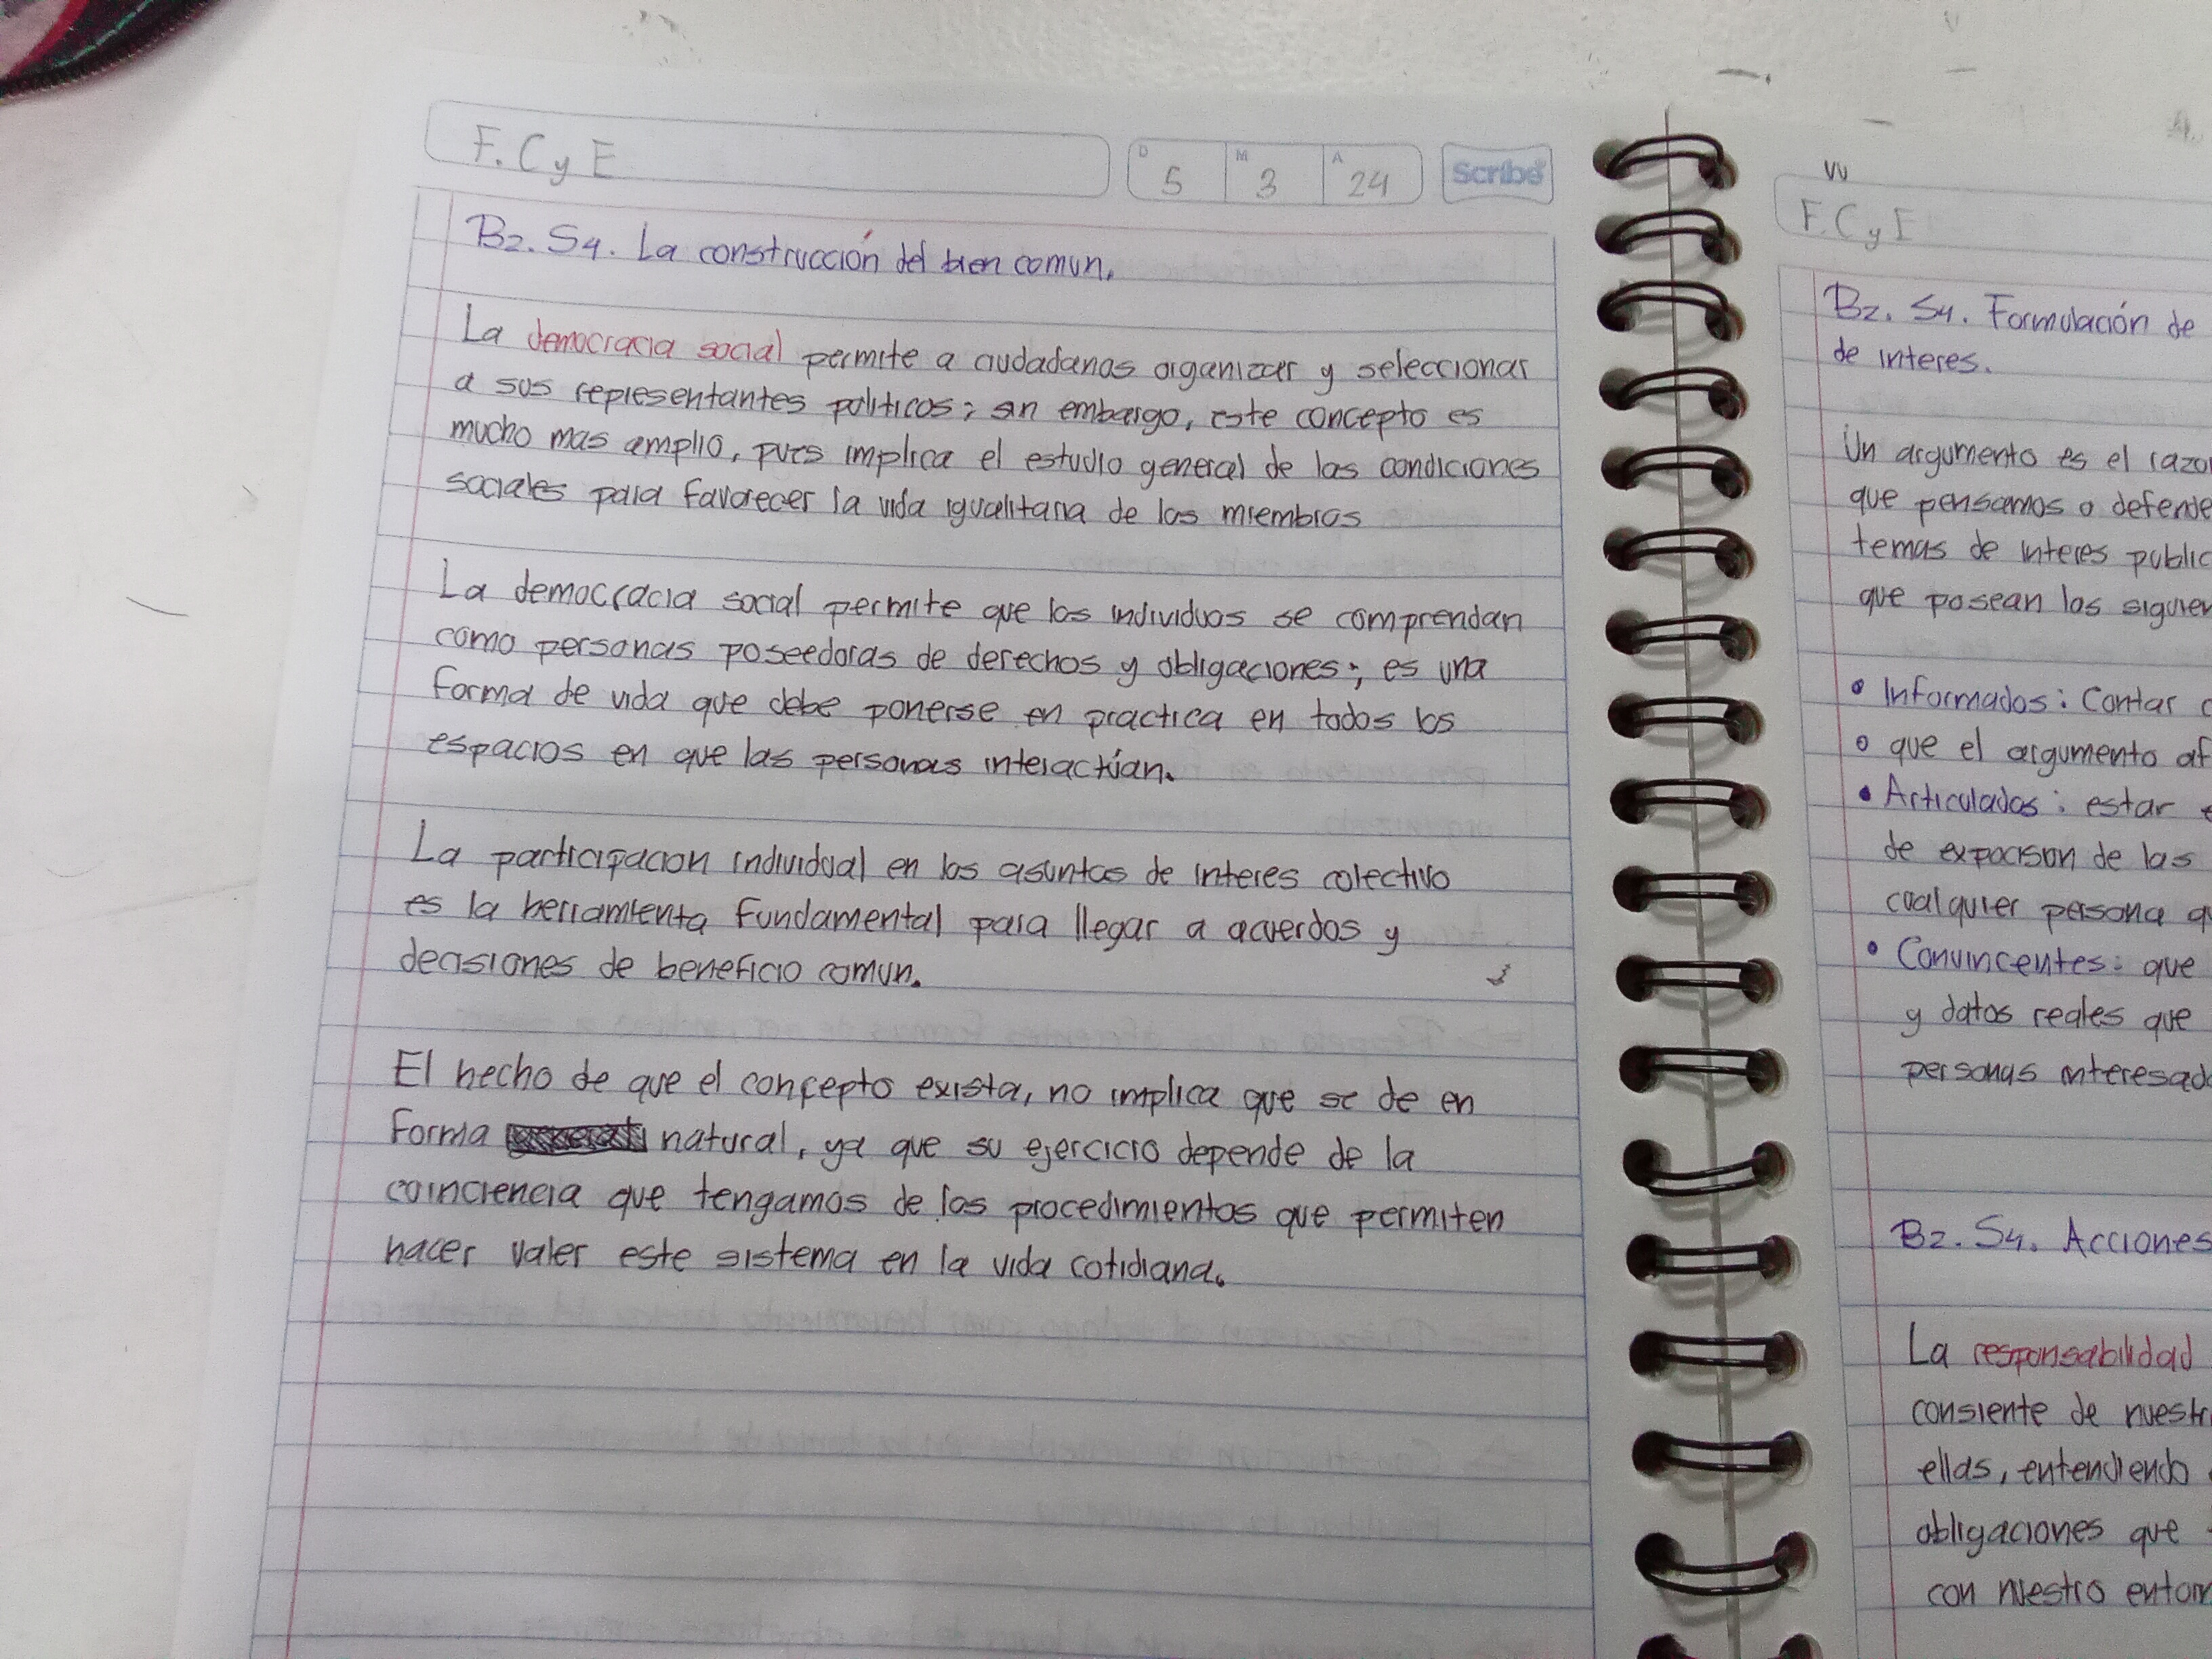 F. C y E
D 5 M 3 A 24
Scribe
B2. S4. La construcción del bien comun.
La democracia social permite a ciudadanos organizar y seleccionar
a sus representantes politicos; sin embargo, este concepto es
mucho mas amplio, pues implica el estudio general de las condiciones
sociales para favorecer la vida igualitaria de los miembros
La democracia social permite que los individuos se comprendan
como personas poseedoras de derechos y obligaciones; es una
forma de vida que debe ponerse en practica en todos los
espacios en que las personas interactúan.
La participacion individual en los asuntos de interes colectivo
es la herramienta fundamental para llegar a acuerdos y
decisiones de beneficio comun.
El hecho de que el concepto exista, no implica que se de en
forma natural, ya que su ejercicio depende de la
coinciencia que tengamos de los procedimientos que permiten
hacer valer este sistema en la vida cotidiana.
F. C y E
B2. S4. Formulación de
de interes.
Un argumento es el
que pensamos o
temas de interes
que posean los
• Informados: Contar
que el argumento
• Articulados: estar
de expocision de las
cualquier persona
• Convincentes: que
y datos reales que
personas
B2. S4. Acciones
La responsabilidad
consiente de
ellas, entendiendo
obligaciones que
con nuestro